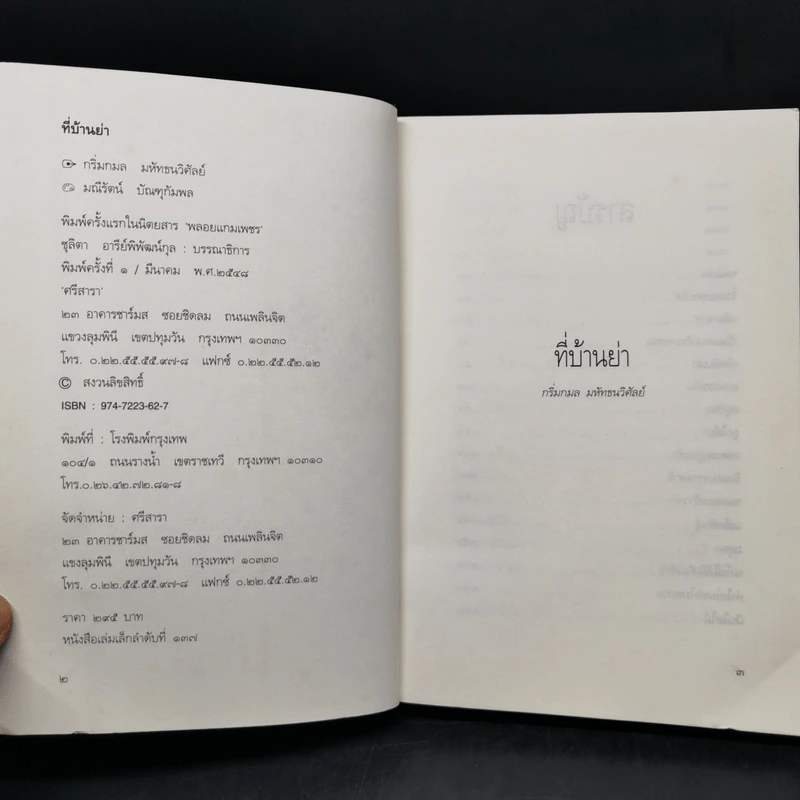 ที่บ้านย่า
กริ่มกมล มหัทธนวิศัลย์
มณีรัตน์ บัณฑุกัมพล
พิมพ์ครั้งแรกในนิตยสาร 'พลอยแกมเพชร'
ชุลิตา อารีย์พิพัฒน์กุล : บรรณาธิการ
พิมพ์ครั้งที่ ๑ / มีนาคม พ.ศ.๒๕๔๘
'ศรีสารา'
๒๓ อาคารชาร์มส ซอยชิดลม ถนนเพลินจิต
แขวงลุมพินี เขตปทุมวัน กรุงเทพฯ ๑๐๓๓๐
โทร. ๐.๒๒.๕๕.๕๕.๙๗-๘ แฟกซ์ ๐.๒๒.๕๕.๕๒.๑๒
© สงวนลิขสิทธิ์
ISBN : 974-7223-62-7
พิมพ์ที่ : โรงพิมพ์กรุงเทพ
๑๐๔/๑ ถนนรางน้ำ เขตราชเทวี กรุงเทพฯ ๑๐๓๑๐
โทร.๐.๒๖.๔๒.๗๒.๘๑-๘
จัดจำหน่าย : ศรีสารา
๒๓ อาคารชาร์มส ซอยชิดลม ถนนเพลินจิต
แขงลุมพินี เขตปทุมวัน กรุงเทพฯ ๑๐๓๓๐
โทร. ๐.๒๒.๕๕.๕๕.๙๗-๘ แฟกซ์ ๐.๒๒.๕๕.๕๒.๑๒
ราคา ๒๙๕ บาท
หนังสือเล่มเล็กลำดับที่ ๑๓๗
๒
ที่บ้านย่า
กริ่มกมล มหัทธนวิศัลย์
๓